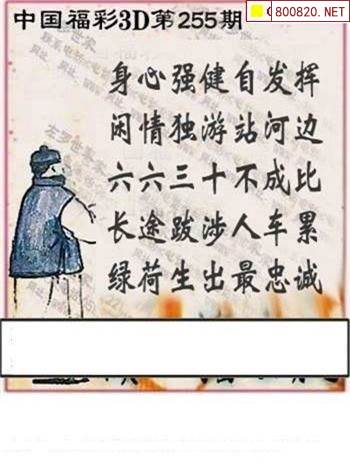 中国福彩3D第255期
800820.NET
身心强健自发挥
闲情独游站河边
六六三十不成比
长途跋涉人车累
绿荷生出最忠诚